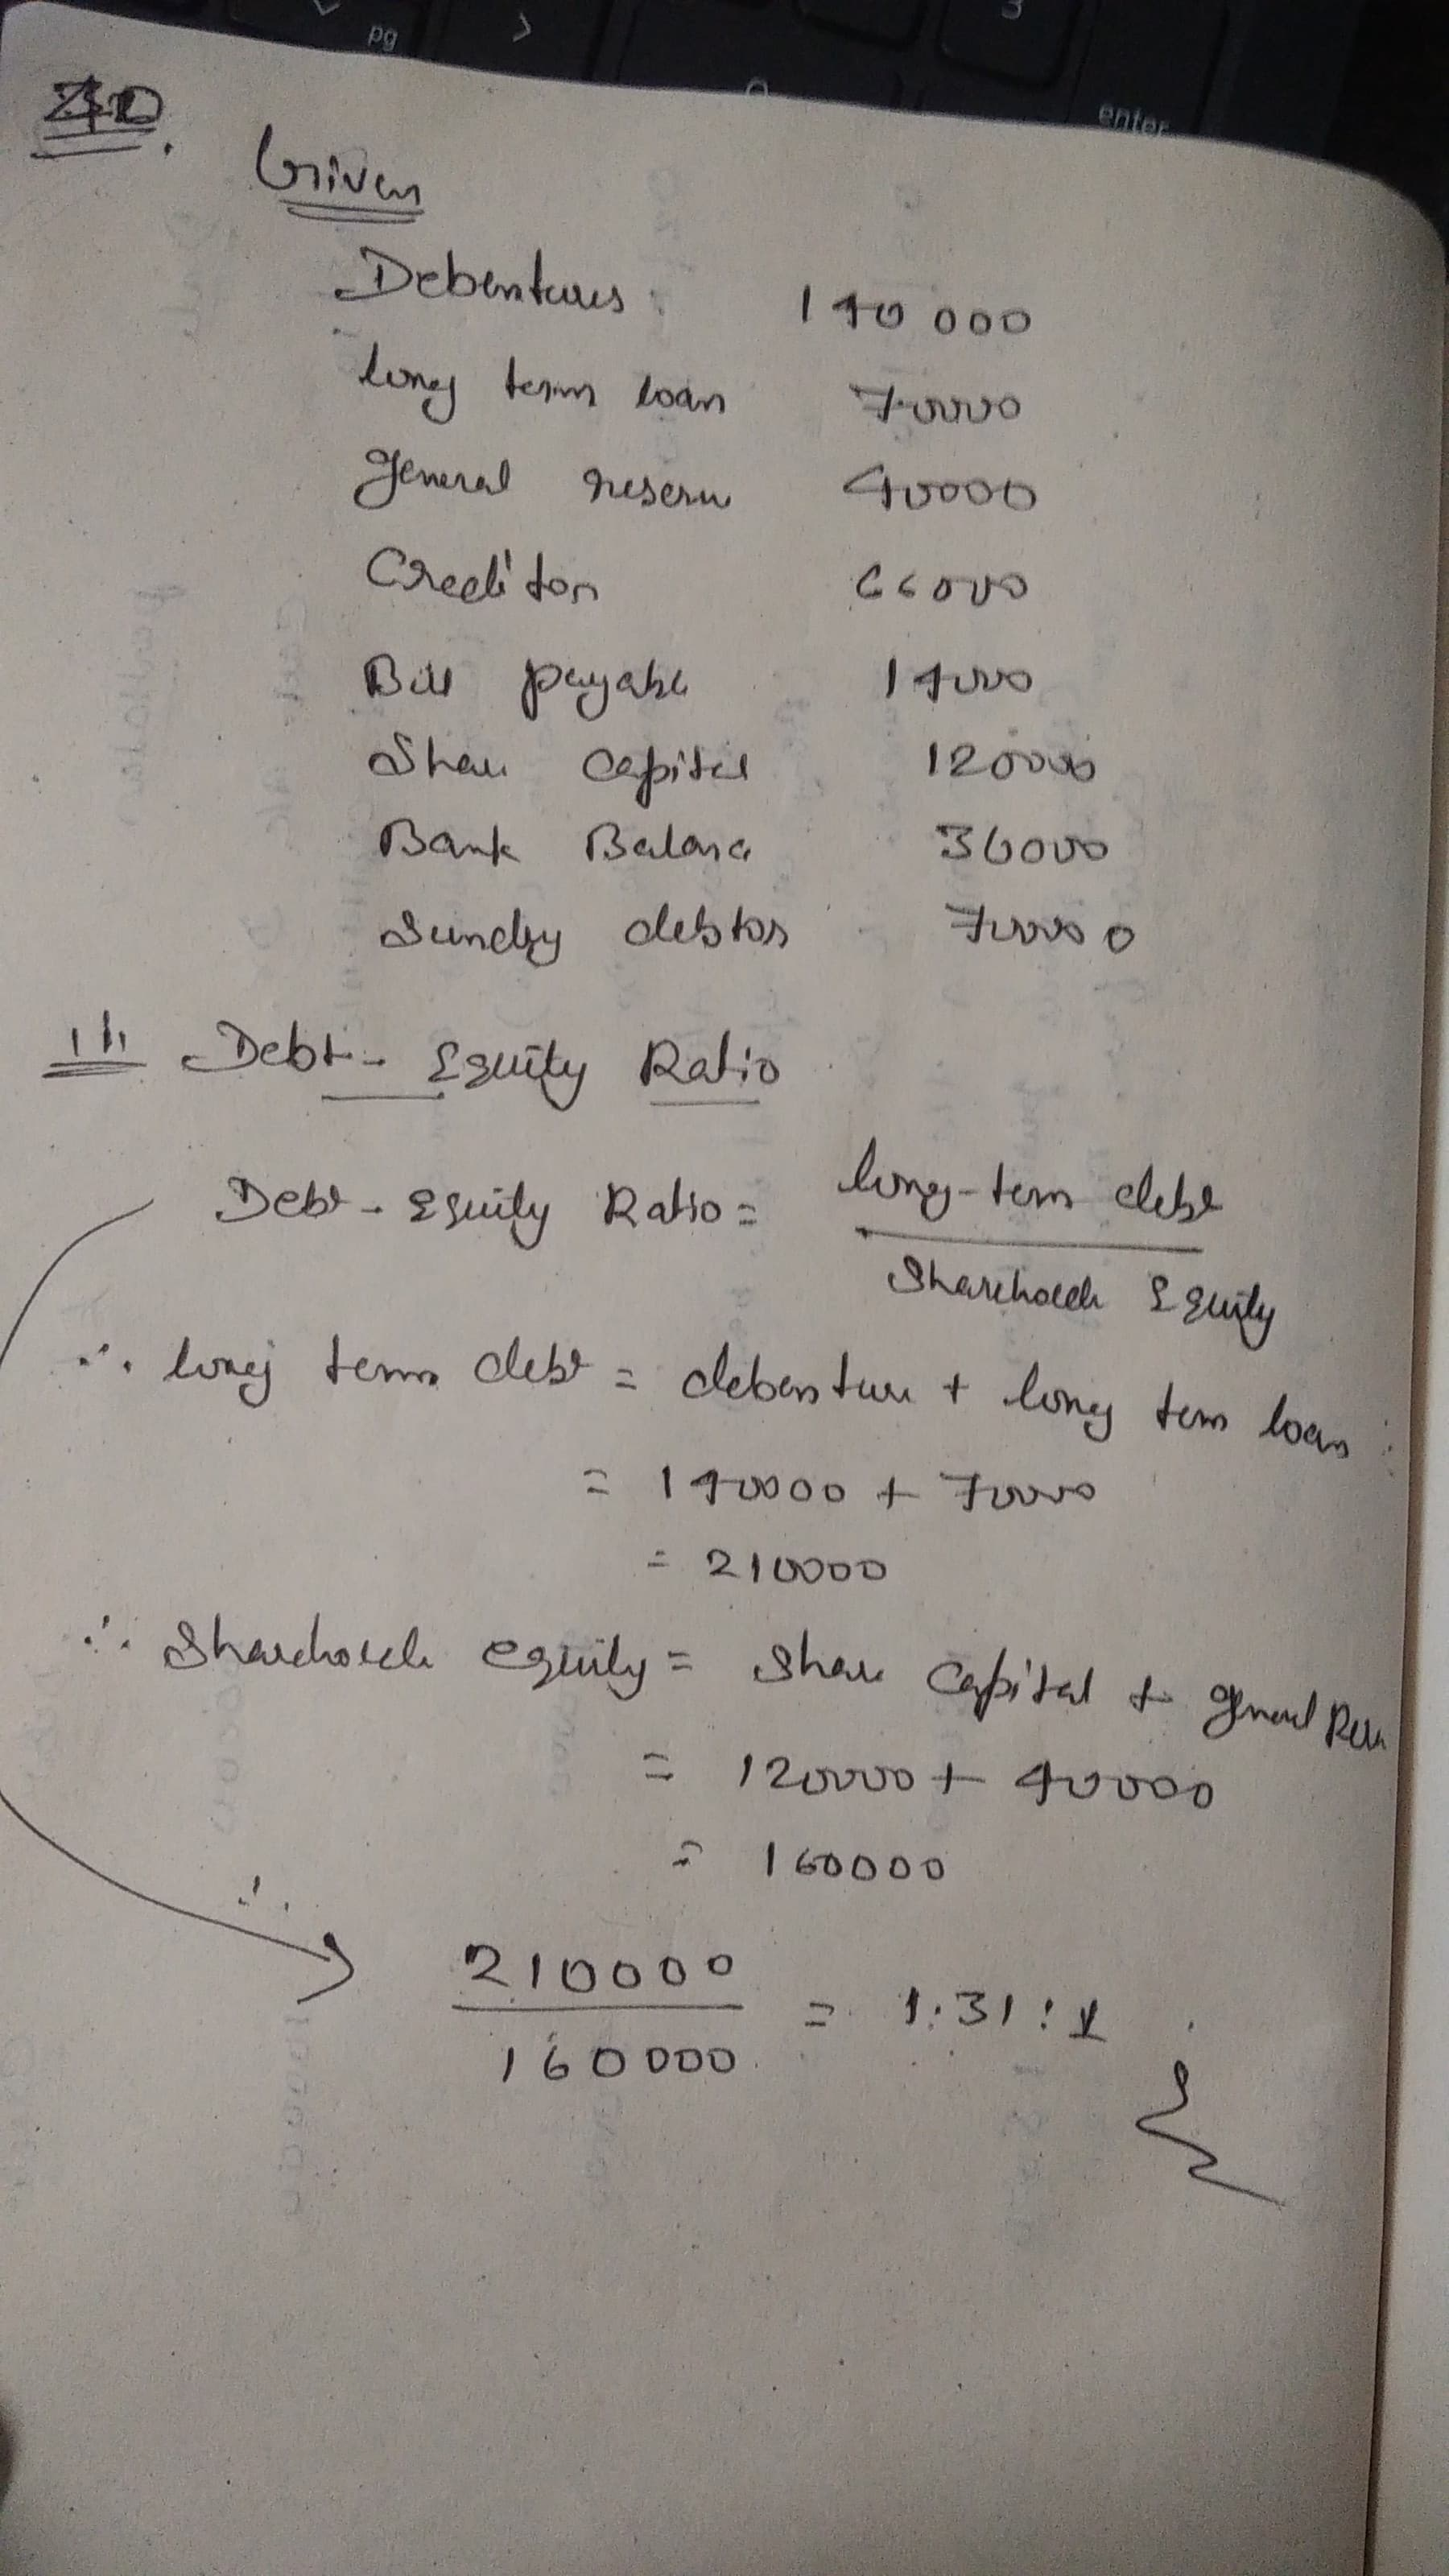 pg
>
3
enter
Given
Debentures: 140 000
long term loan 70000
general reserve 40000
Creditors 66000
Bill payable 14000
Share Capital 120000
Bank Balance 36000
Sundry debtors 70000
Debt - Equity Ratio
Debt - Equity Ratio = long-term debt
Shareholder Equity
∴ long term debt = debenture + long term loan
= 140000 + 70000
= 210000
∴ Shareholder equity = Share Capital + general
= 120000 + 40000
= 160000
∴ 210000
160000
= 1.31 : 1